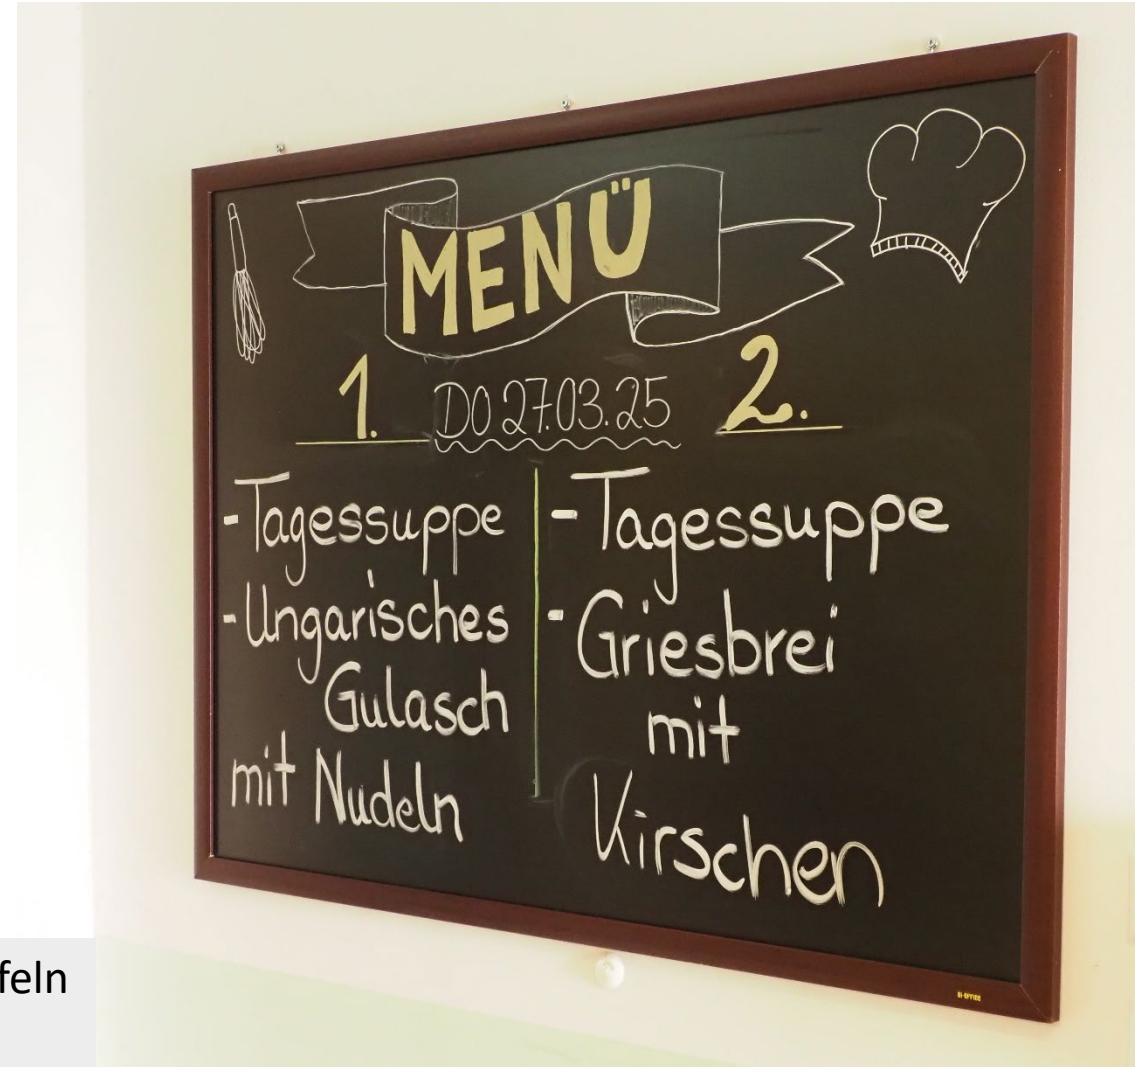 MENÜ
1. DO 27.03.25 2.
-Tagessuppe
-Ungarisches
Gulasch
mit Nudeln
-Tagessuppe
-Griesbrei
mit
Kirschen
BI-OFFICE
feln